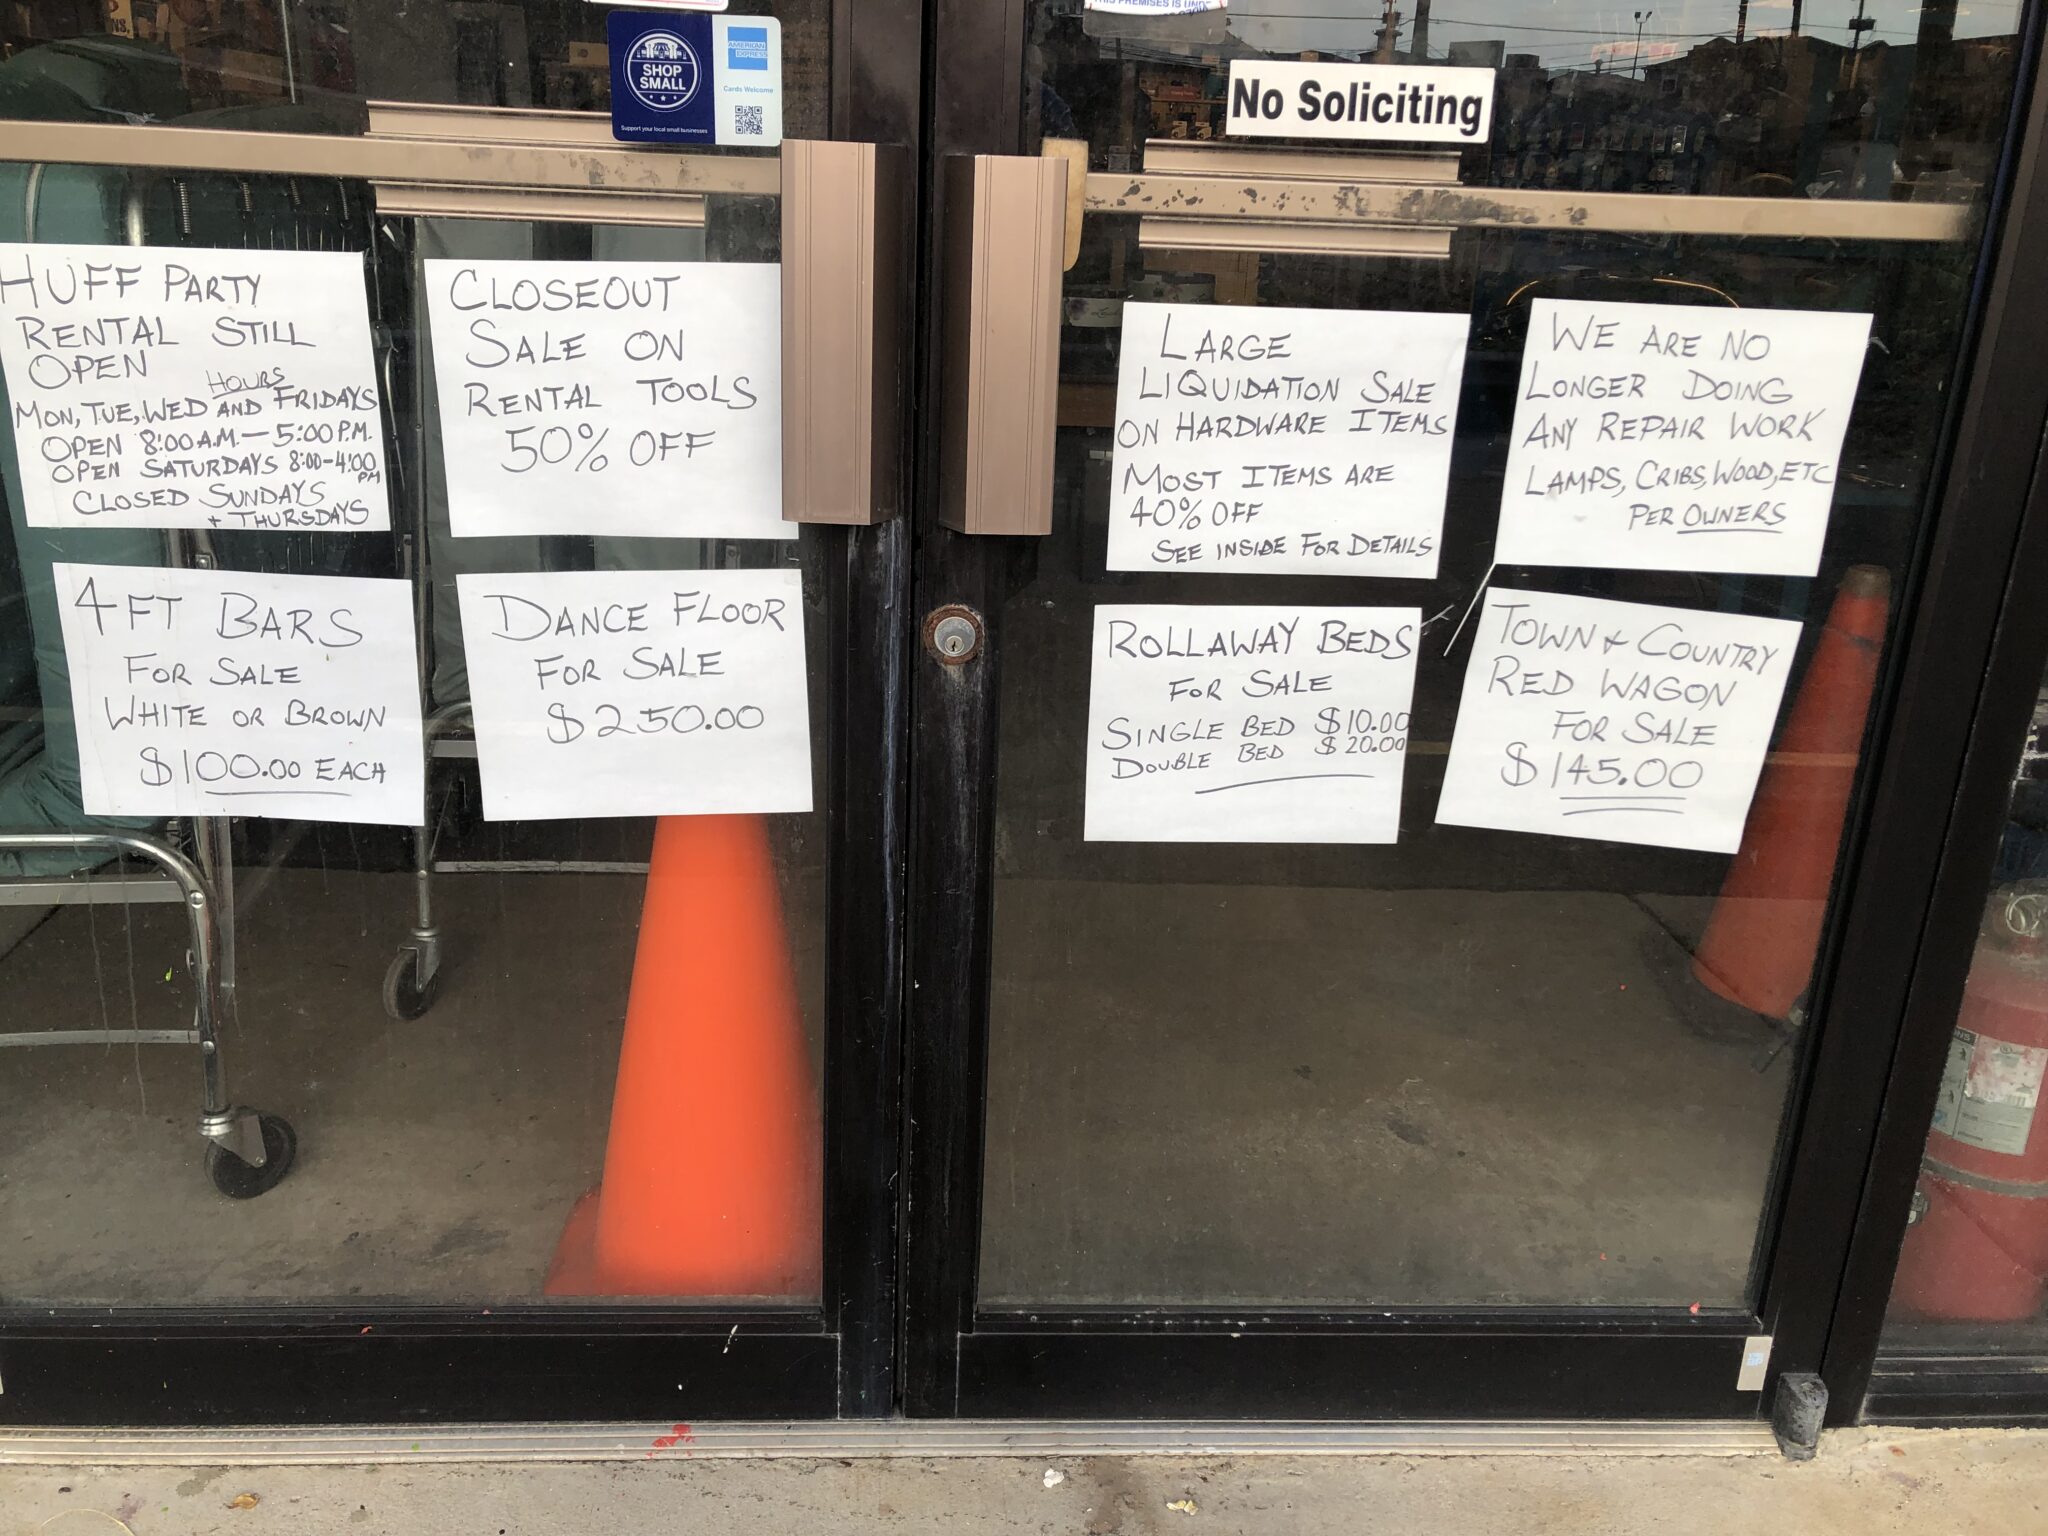 NS.
SHOP
SMALL
Support your local small businesses
AMERICAN
EXPRESS
Cards Welcome
THIS PREMISES IS UNDE
No Soliciting
HUFF PARTY
RENTAL STILL
OPEN
HOURS
MON, TUE, WED AND FRIDAYS
OPEN 8:00 A.M. — 5:00 P.M.
OPEN SATURDAYS 8:00-4:00
PM
CLOSED SUNDAYS
+ THURSDAYS
CLOSEOUT
SALE ON
RENTAL TOOLS
50% OFF
4 FT BARS
FOR SALE
WHITE OR BROWN
$100.00 EACH
DANCE FLOOR
FOR SALE
$250.00
LARGE
LIQUIDATION SALE
ON HARDWARE ITEMS
MOST ITEMS ARE
40% OFF
SEE INSIDE FOR DETAILS
WE ARE NO
LONGER DOING
ANY REPAIR WORK
LAMPS, CRIBS, WOOD, ETC
PER OWNERS
ROLLAWAY BEDS
FOR SALE
SINGLE BED $10.00
DOUBLE BED $20.00
TOWN + COUNTRY
RED WAGON
FOR SALE
$145.00